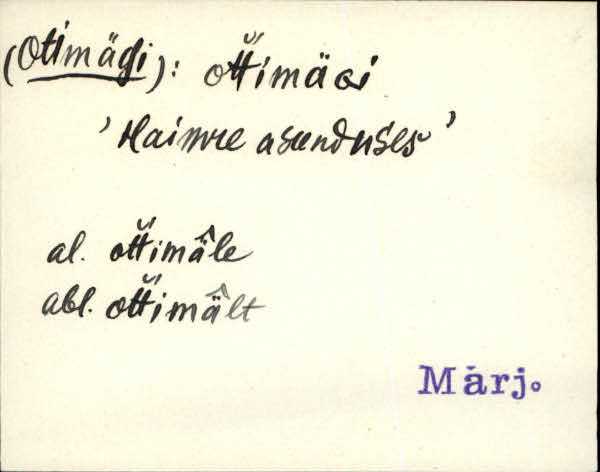 (Otimägi): ot̆timäGi
'Haimre asunduses'
al. ot̆timä̂le
abl. ot̆timä̂lt
Märj.